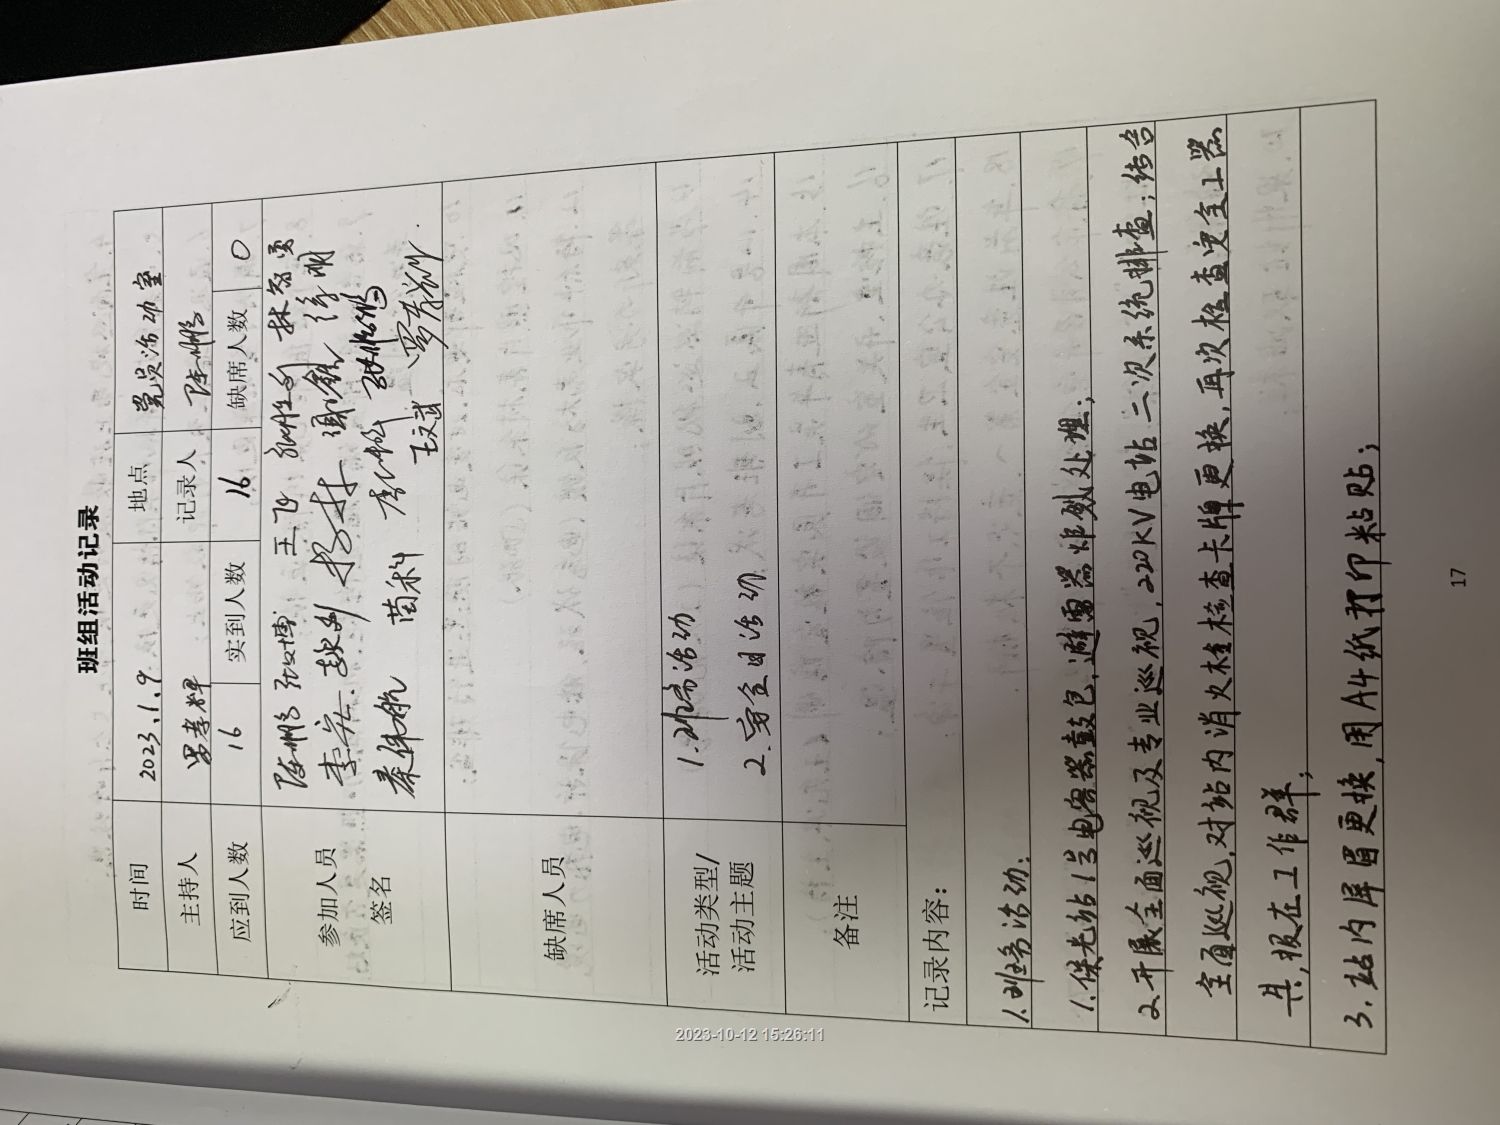 班组活动记录
时间 2023.1.9 地点 党员活动室
主持人 记录人 陈鹏
应到人数 16 实到人数 16 缺席人数 0
参加人员 陈鹏 王飞
签名 李宏 杨林
秦伟航 苗科
王文武
缺席人员
活动类型/ 1.班务活动
活动主题 2.安全日活动
备注
记录内容:
1.班务活动:
1.侯光站1号电容器鼓包,避雷器炸裂处理;
2.开展全面巡视及专业巡视,220KV电站二次系统排查;结合
全面巡视,对站内消火栓检查卡牌更换,再次检查安全工器
具,报在工作群;
3.站内屏眉更换,用A4纸打印粘贴;
17
2023-10-12 15:26:11